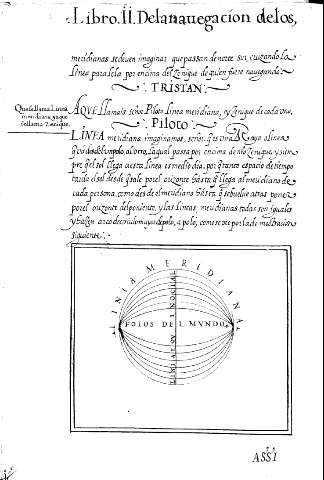 Libro. II. De la nauegacion de los,
meridianas se deuen imaginar que passan de norte sur, cruzando la
linea paralela por encima del Zenique de quien fuere nauegando.
TRISTAN.
Que se llama Linea
meridiana, y que
se llama Zenique.
AQVE llamais señor Piloto Linea meridiana, y Zenique de cada uno,
PILOTO.
LINEA meridiana imaginamos, señor, que es una Raya o linea
que va desde un polo, al otro, la qual passa por encima de nro Zenique, y siem
pre que el sol llega a esta linea es medio dia, por quanto espacio de tiempo
tarda el sol desde que sale por el orizonte hasta que llega al meridiano de
cada persona, como des de el meridiano hasta que se buelue a tras poner
por el orizonte del poniente, y las lineas, meridianas todas son iguales
y hazen arco de circulo mayor de polo, a polo, como se vee por la demostracion
siguiente.
LINIA MERIDIANA
POLOS DEL MVNDO
ASSI